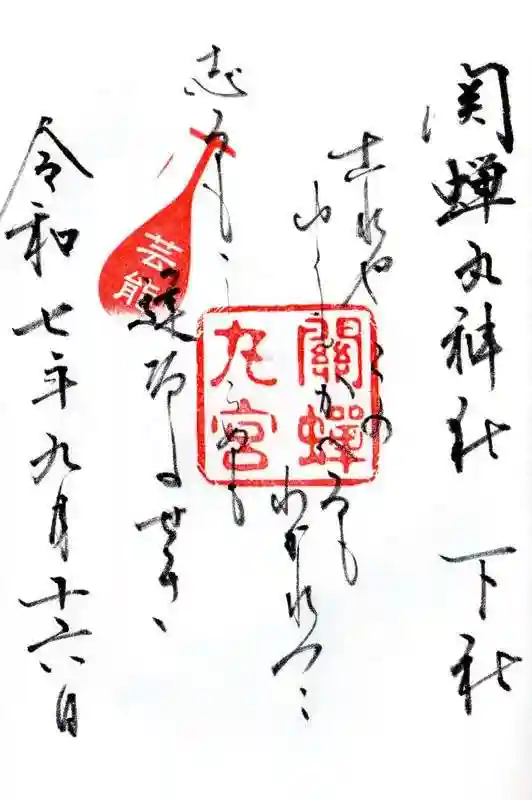 関蝉丸神社 下社
古れやこの
ゆくもかへるも
わかれつゝ
志るもしらぬも
逢坂
令和七年九月十六日
芸能
關蟬
丸宮